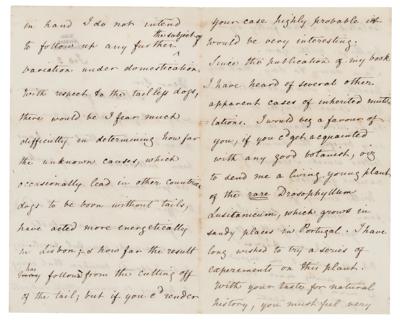 in hand I do not intend
to follow up any further the subject of
variation under domestication.
With respect to the tailless dogs,
there would be I fear much
difficulty in determining how far
the unknown causes, which
occasionally lead in other countries
dogs to be born without tails,
have acted more energetically
in Lisbon, & how far the result
has followed from the cutting off
of the tail; but if you cd render
your case highly probable it
would be very interesting.
Since the publication of my book
I have heard of several other
apparent cases of inherited muti-
lations. I would beg a favour of
you, if you cd get acquainted
with any good botanist, viz
to send me a living young plant
of the rare Drosophyllum
Lusitanicum, which grows in
sandy places in Portugal. I have
long wished to try a series of
experiments on this plant.
With your taste for natural
history, you must feel very